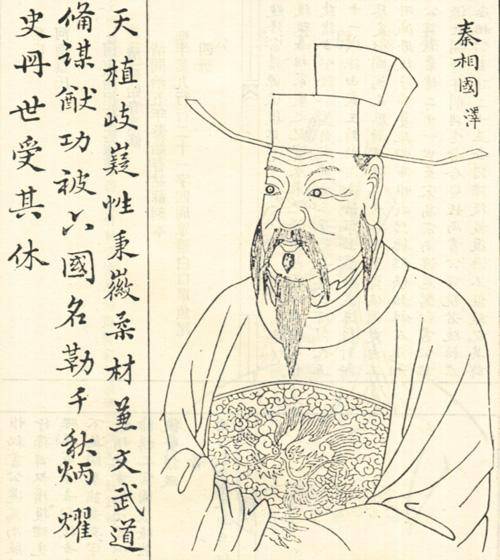 秦相國澤
天植岐嶷性秉徽柔材兼文武道
備謀猷功被六國名勒千秋炳燿
史冊世受其休